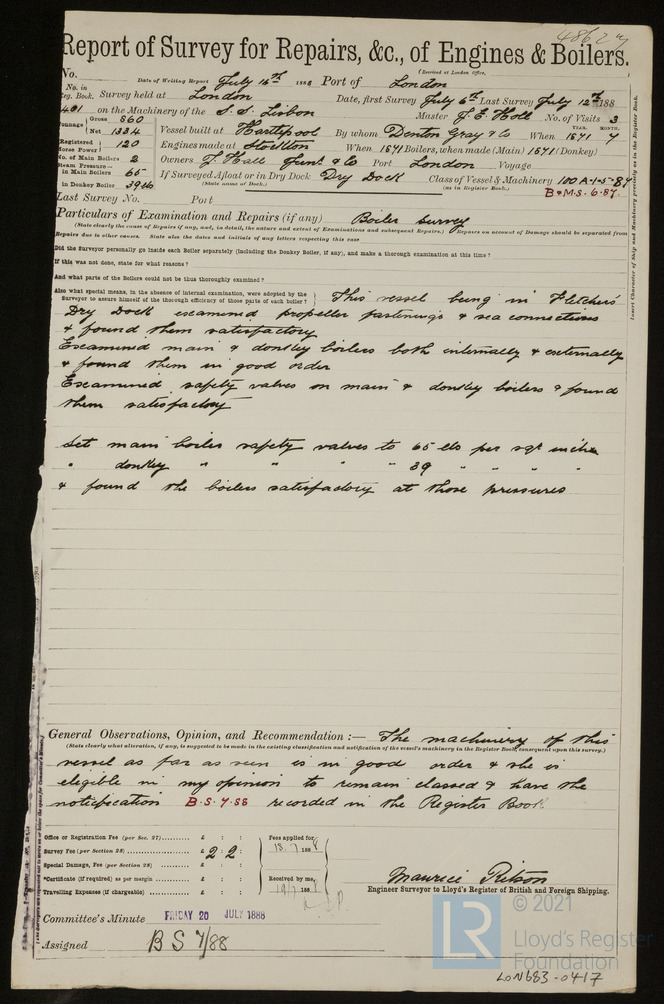 48627
Report of Survey for Repairs, &c., of Engines & Boilers.
(Received at London Office,
No. Date of Writing Report July 16th 1888 Port of London
No. in Reg. Book. Survey held at London Date, first Survey July 6th Last Survey July 12th 188
401 on the Machinery of the S.S. Lisbon Master J. E. Holt No. of Visits 3
Tonnage Gross 860
Net 1334 Vessel built at Hartlepool By whom Denton Gray & Co When YEAR. 1871 MONTH. 7
Registered Horse Power 120 Engines made at Stockton When 1871 Boilers, when made (Main) 1871 (Donkey)
No. of Main Boilers 2 Owners J. Hall Junr. & Co Port London Voyage
Steam Pressure— in Main Boilers 65 If Surveyed Afloat or in Dry Dock Dry Dock Class of Vessel & Machinery 100 A-1-5-87
(State name of Dock.) (as in Register Book.)
in Donkey Boiler B&M.S. 6.87.
Last Survey No. Port
Particulars of Examination and Repairs (if any) Boiler Survey
(State clearly the cause of Repairs if any, and, in detail, the nature and extent of Examinations and subsequent Repairs.) Repairs on account of Damage should be separated from
Repairs due to other causes. State also the dates and initials of any letters respecting this case
Did the Surveyor personally go inside each Boiler separately (including the Donkey Boiler, if any), and make a thorough examination at this time?
If this was not done, state for what reasons?
And what parts of the Boilers could not be thus thoroughly examined?
Also what special means, in the absence of internal examination, were adopted by the
Surveyor to assure himself of the thorough efficiency of those parts of each boiler? This vessel being in Fletchers'
Dry Dock examined propeller fastenings & sea connections
& found them satisfactory
Examined main & donkey boilers both internally & externally
& found them in good order
Examined safety valves on main & donkey boilers & found
them satisfactory
Set main boiler safety valves to 65 lbs per sqr inche
" donkey " " " " 39 " " " "
& found the boilers satisfactory at those pressures
General Observations, Opinion, and Recommendation :— The machinery of this
(State clearly what alteration, if any, is suggested to be made in the existing classification and notification of the vessel's machinery in the Register Book, consequent upon this survey.)
vessel as far as seen is in good order & she is
eligible in my opinion to remain classed & have the
notification B.S. 7.88 recorded in the Register Book
Office or Registration Fee (per Sec. 27) £ : :
Survey Fee (per Section 28) £ 2 : 2 :
Special Damage, Fee (per Section 28) £ : :
*Certificate (if required) as per margin £ : :
Travelling Expenses (if chargeable) £ : :
Fees applied for
18.7.1888
Received by me,
19/7 1888
Maurice Ritson
Engineer Surveyor to Lloyd's Register of British and Foreign Shipping.
Committee's Minute FRIDAY 20 JULY 1888
Assigned B S 7/88
Insert Character of Ship and Machinery precisely as in the Register Book.
LR © 2021
Lloyd's Register
Foundation
LON683-0417